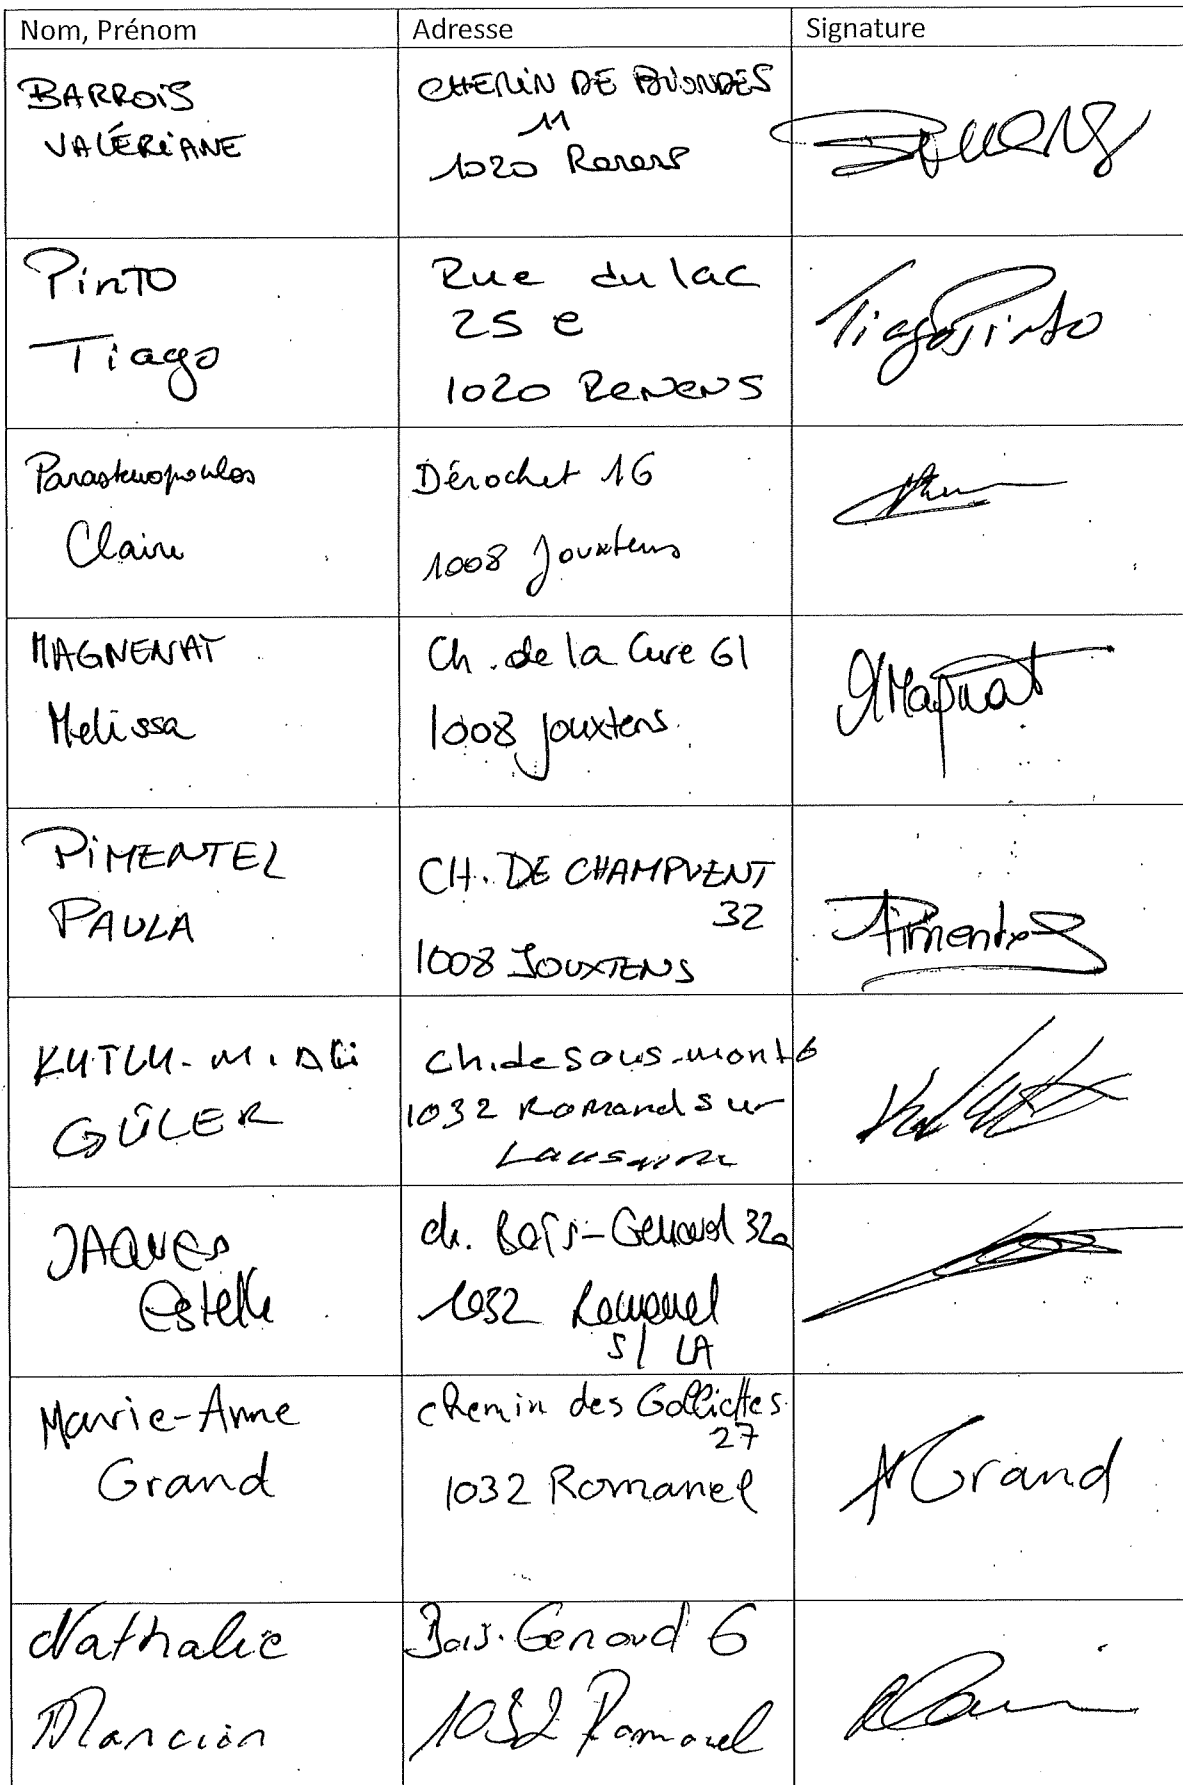 Nom, Prénom Adresse Signature
BARROIS
VALÉRIANE
CHEMIN DE
11
1020 Renens
Pinto
Tiago
Rue du lac
25 e
1020 Renens
Tiago Pinto
Paraskevopoulos
Claire
Dérochet 16
1008 Jouxtens
MAGNENAT
Melissa
Ch. de la Cure 61
1008 Jouxtens
PIMENTEL
PAULA
CH. DE CHAMPVENT
32
1008 JOUXTENS
Pimentel
KUTLU-M. Ali
GÜLER
ch. de sous-mont 6
1032 Romand sur
Lausanne
JAQUES
Estelle
ch. Bois-Genoud 32a
1032 Romanel
s/ LA
Marie-Anne
Grand
chemin des Golliettes
27
1032 Romanel
Grand
Nathalie
Mancion
Bois-Genoud 6
1032 Romanel